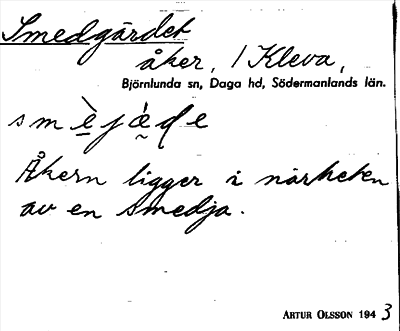 Smedgärdet
åker, / Kleva,
Björnlunda sn, Daga hd, Södermanlands län.
smèjáde
Åkern ligger i närheten
av en smedja.
ARTUR OLSSON 1943